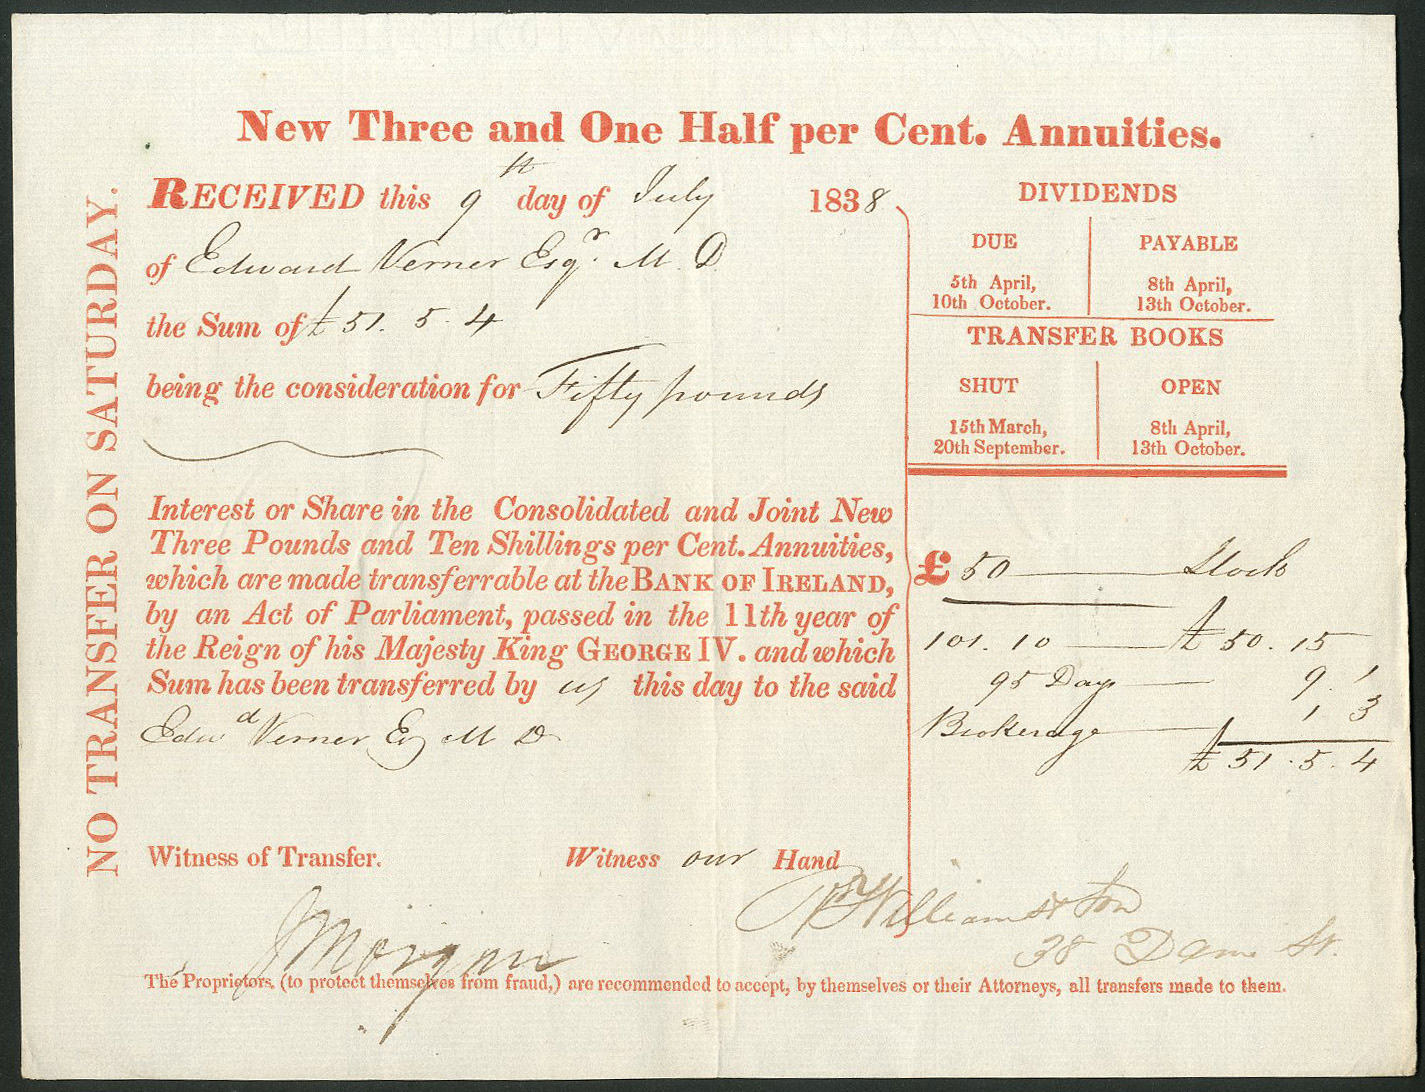 New Three and One Half per Cent. Annuities.
NO TRANSFER ON SATURDAY.
RECEIVED this 9th day of July 1838
of Edward Verner Esqr. M.D
the Sum of £51.5.4
being the consideration for Fifty pounds
Interest or Share in the Consolidated and Joint New
Three Pounds and Ten Shillings per Cent. Annuities,
which are made transferrable at the BANK OF IRELAND,
by an Act of Parliament, passed in the 11th year of
the Reign of his Majesty King GEORGE IV. and which
Sum has been transferred by us this day to the said
Edwd Verner Esq M D
DIVIDENDS
DUE
PAYABLE
5th April,
10th October.
8th April,
13th October.
TRANSFER BOOKS
SHUT
OPEN
15th March,
20th September.
8th April,
13th October.
£ 50 Stock
101.10 £50.15
95 Days 9.1
Brokerage 1 3
£51.5.4
Witness of Transfer. Witness our Hand
Morgan
Williams & Son
38 Dame St.
The Proprietors, (to protect themselves from fraud,) are recommended to accept, by themselves or their Attorneys, all transfers made to them.